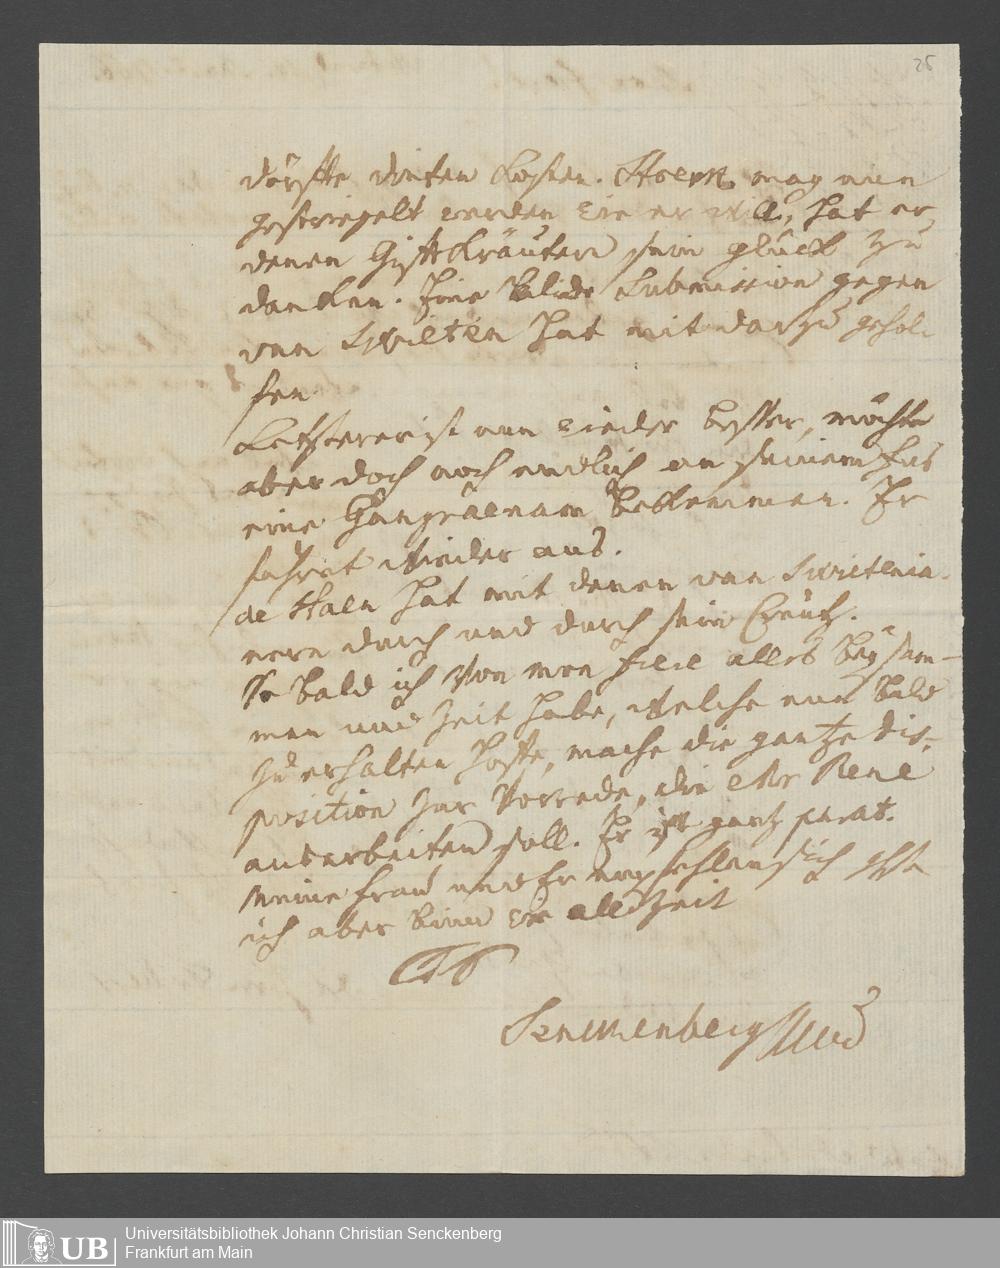 25
dörffte dieten Kosten. Stoerk mag nun
gestriegelt werden wie er will, hat er
denen Gifftkräutern sein glück zu
dancken. Eine blinde Submission gegen
van Swieten hat mit darzu gehol-
fen.
Letzterer ist nun wieder besser, möchte
aber doch noch endlich an seinem Fus
eine Gangraenam bekommen. Er
fahret wieder aus.
de Haen hat mit denen van Swietenia-
nern durch und durch sein Creutz.
So bald ich von mon frere alles beysam-
men und Zeit habe, welche nun bald
zu erhalten hoffe, mache die gantze dis-
position zur Vorrede, die Mr Rene
ausarbeiten soll. Er ist gantz parat.
Meine frau und Er empfehlen sich
ich aber binn wie allezeit
Senckenberg
UB
Universitätsbibliothek Johann Christian Senckenberg
Frankfurt am Main